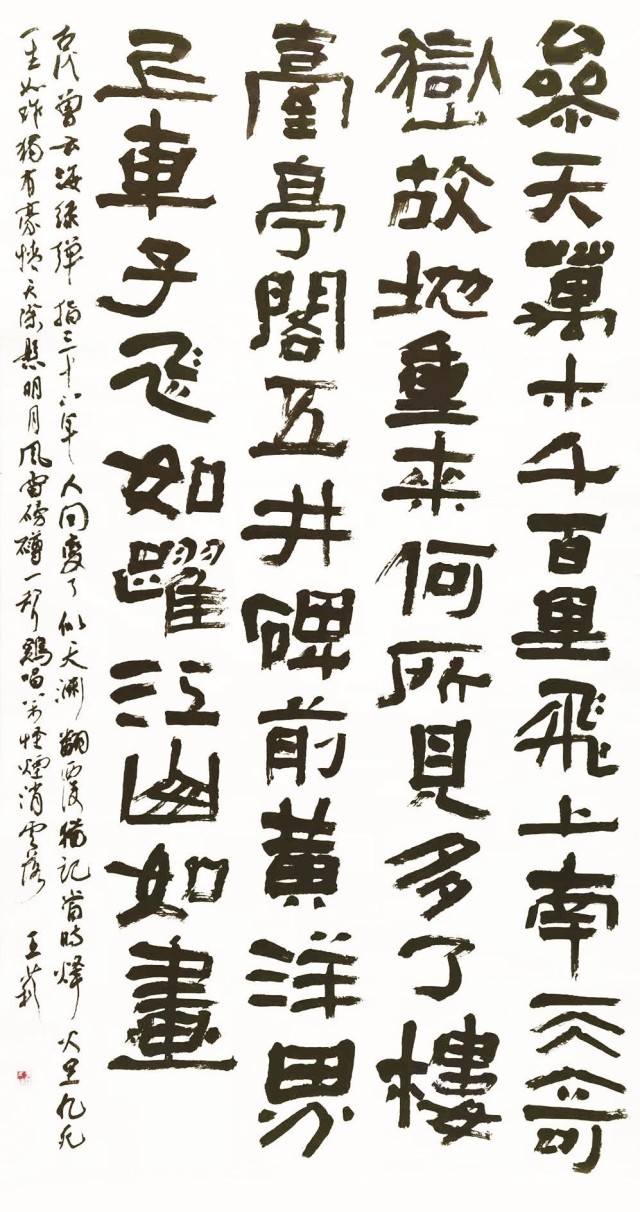 參天萬木千百里飛上南天奇
嶽故地重來何所見多了樓
臺亭閣五井碑前黃洋界
上車子飛如躍江山如畫
古代曾云海綠彈指三十八年人间變了似天渊翻覆猶記當時烽火里九死
一生如昨獨有豪情天際懸明月風雷磅礴一聲鷄唱萬怪煙消雲落 王